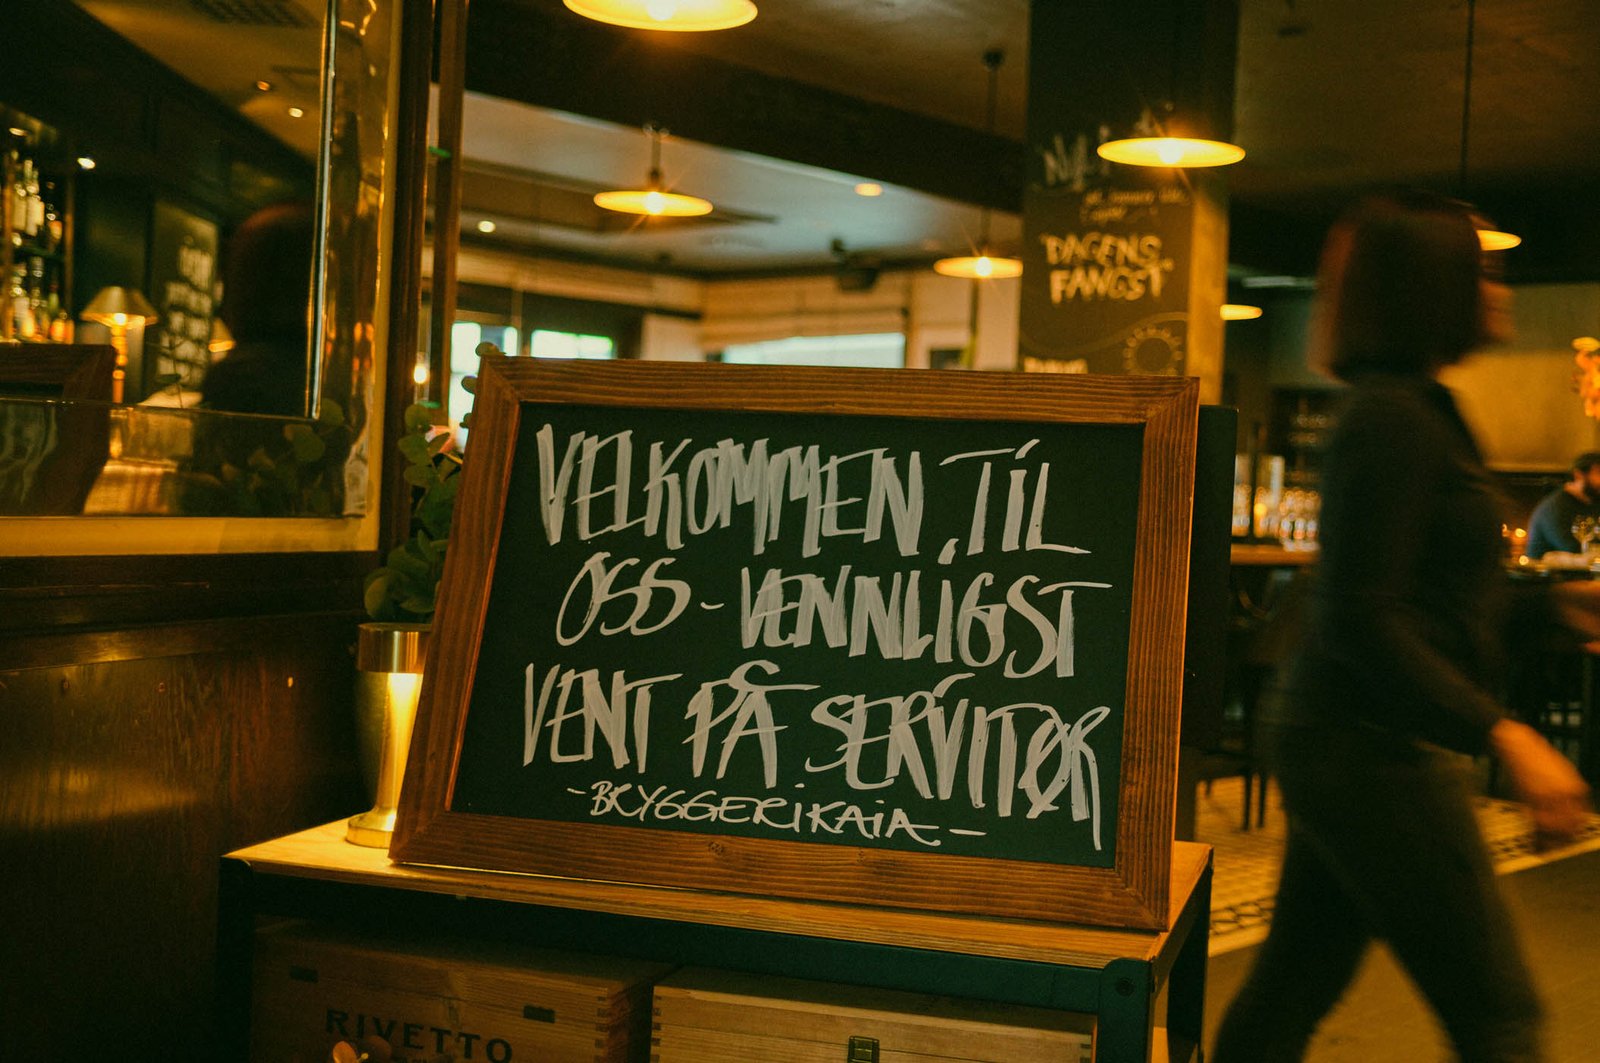 VELKOMMEN TIL
OSS - VENNLIGST
VENT PÅ SERVITØR
- BRYGGERIKAIA -
"DAGENS
FANGST"
RIVETTO